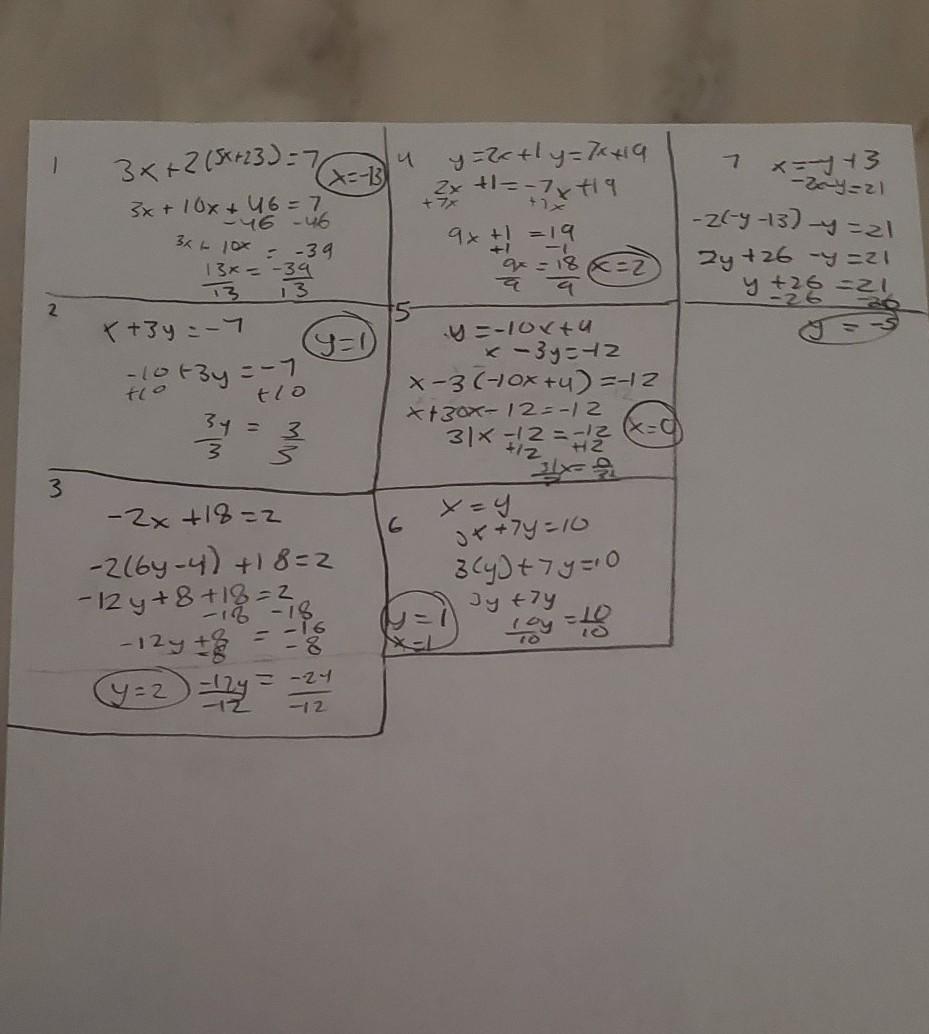 1
3x+2(5x+23)=7
x=-13
3x+10x+46=7
-46 -46
3x+10x = -39
13x = -39
13 13
2
x+3y=-7
y=1
-10+3y=-7
+10 +10
3y = 3
3 3
3
-2x+18=2
-2(6y-4)+18=2
-12y+8+18=2
-18 -18
-12y+8 = -16
-8 -8
y=2
-12y = -24
-12 -12
4
y=2x+1 y=7x+19
2x+1=-7x+19
+7x +7x
9x+1=19
+1 -1
9x=18
9 9
x=2
5
y=-10x+4
x-3y=-12
x-3(-10x+4)=-12
x+30x-12=-12
31x-12=-12
+12 +12
x=0
31x=0
6
x=y
3x+7y=10
3(y)+7y=10
3y+7y
10y=10
10 10
y=1
x=1
7
x=-y+3
-2x-y=21
-2(-y-13)-y=21
2y+26-y=21
y+26=21
-26 -26
y=-5